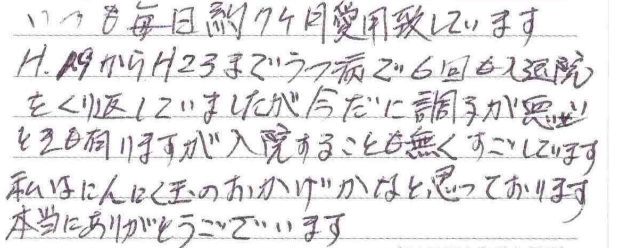 いつも毎日約7ケ月愛用致しています
H.19からH23までうつ病で6回も入退院
をくり返していましたが今だに調子が悪い
ときも有りますが入院することも無くすごしています
私はにんにく玉のおかげかなと思っております
本当にありがとうございます